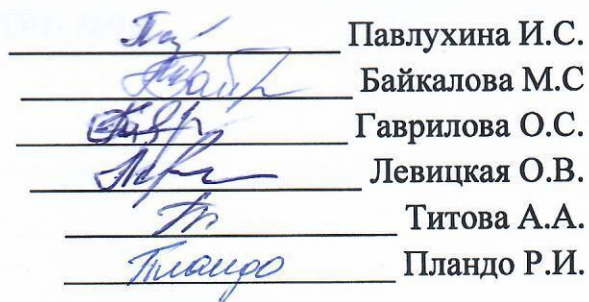 Павлухина И.С.
Байкалова М.С
Гаврилова О.С.
Левицкая О.В.
Титова А.А.
Пландо Пландо Р.И.